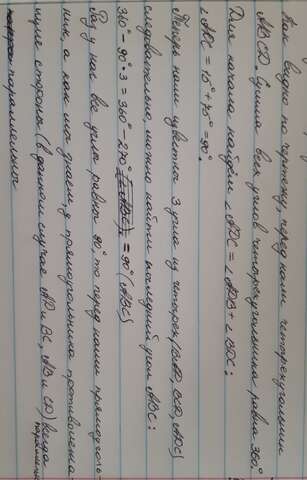 Как видно по чертежу, перед нами четырехугольник
ABCD. Сумма всех углов четырехугольника равна 360°.
Для начала найдём ∠ADC = ∠ADB + ∠BDC:
∠ADC = 15° + 75° = 90°.
Теперь нам известны 3 угла из четырех (BAD, BCD, ADC)
следовательно, можно найти последний угол ABC:
360° - 90° · 3 = 360° - 270° = 90° (ABC)
Раз у нас все углы равны 90° то перед нами прямоуголь-
ник, а как мы знаем, у прямоугольника противополож-
ные стороны (в данном случае AD и BC, AB и CD) всегда
параллельны